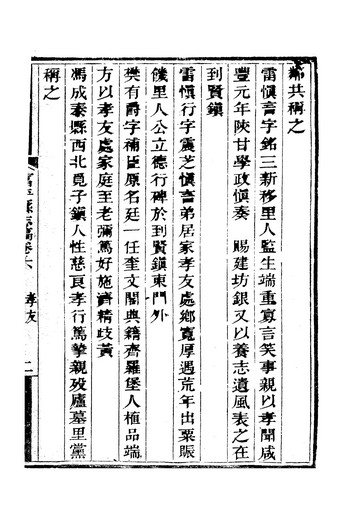 鄰共稱之
雷慎言字銘三新移里人監生端重寡言笑事親以孝聞咸
豐元年陝甘學政慎奏　賜建坊銀又以養志遺風表之在
到賢鎮
雷慎行字震芝慎言弟居家孝友處鄉寬厚遇荒年出粟賑
饑里人公立德行碑於到賢鎮東門外
樊有爵字補臣原名廷一任奎文閣典籍齊羅堡人植品端
方以孝友處家庭至老彌篤好施濟精歧黃
馮成泰縣西北覓子鎮人性慈良孝行篤摯親歿廬墓里黨
稱之
富平縣志稿卷六　孝友　二